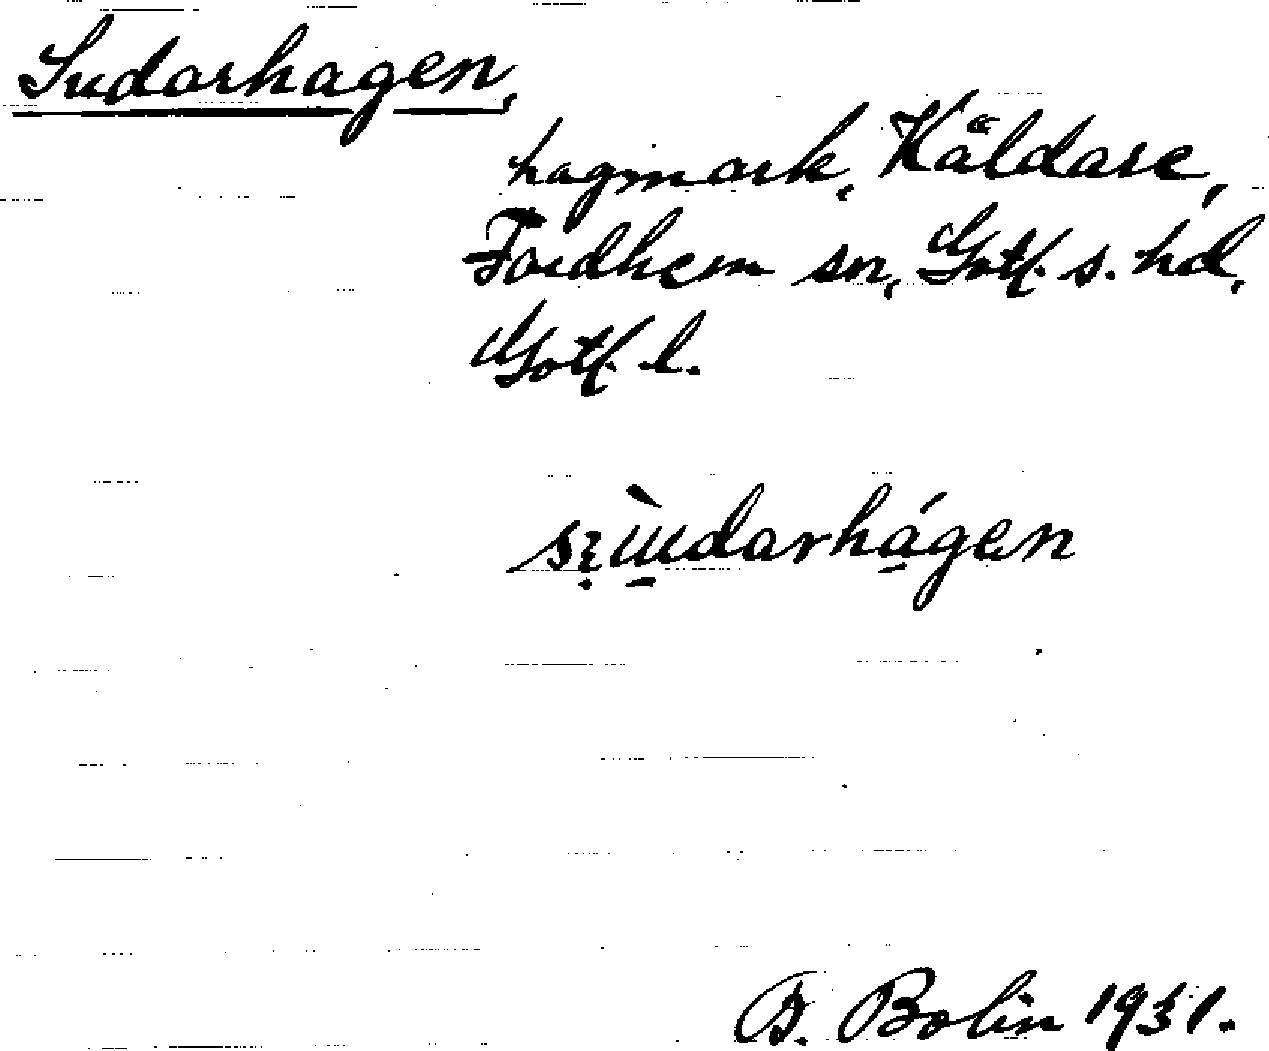 Sudarhagen,
hagmark, Käldare,
Fardhem sn, Gotl. s. hd,
Gotl. l.
G. Bolin 1931.